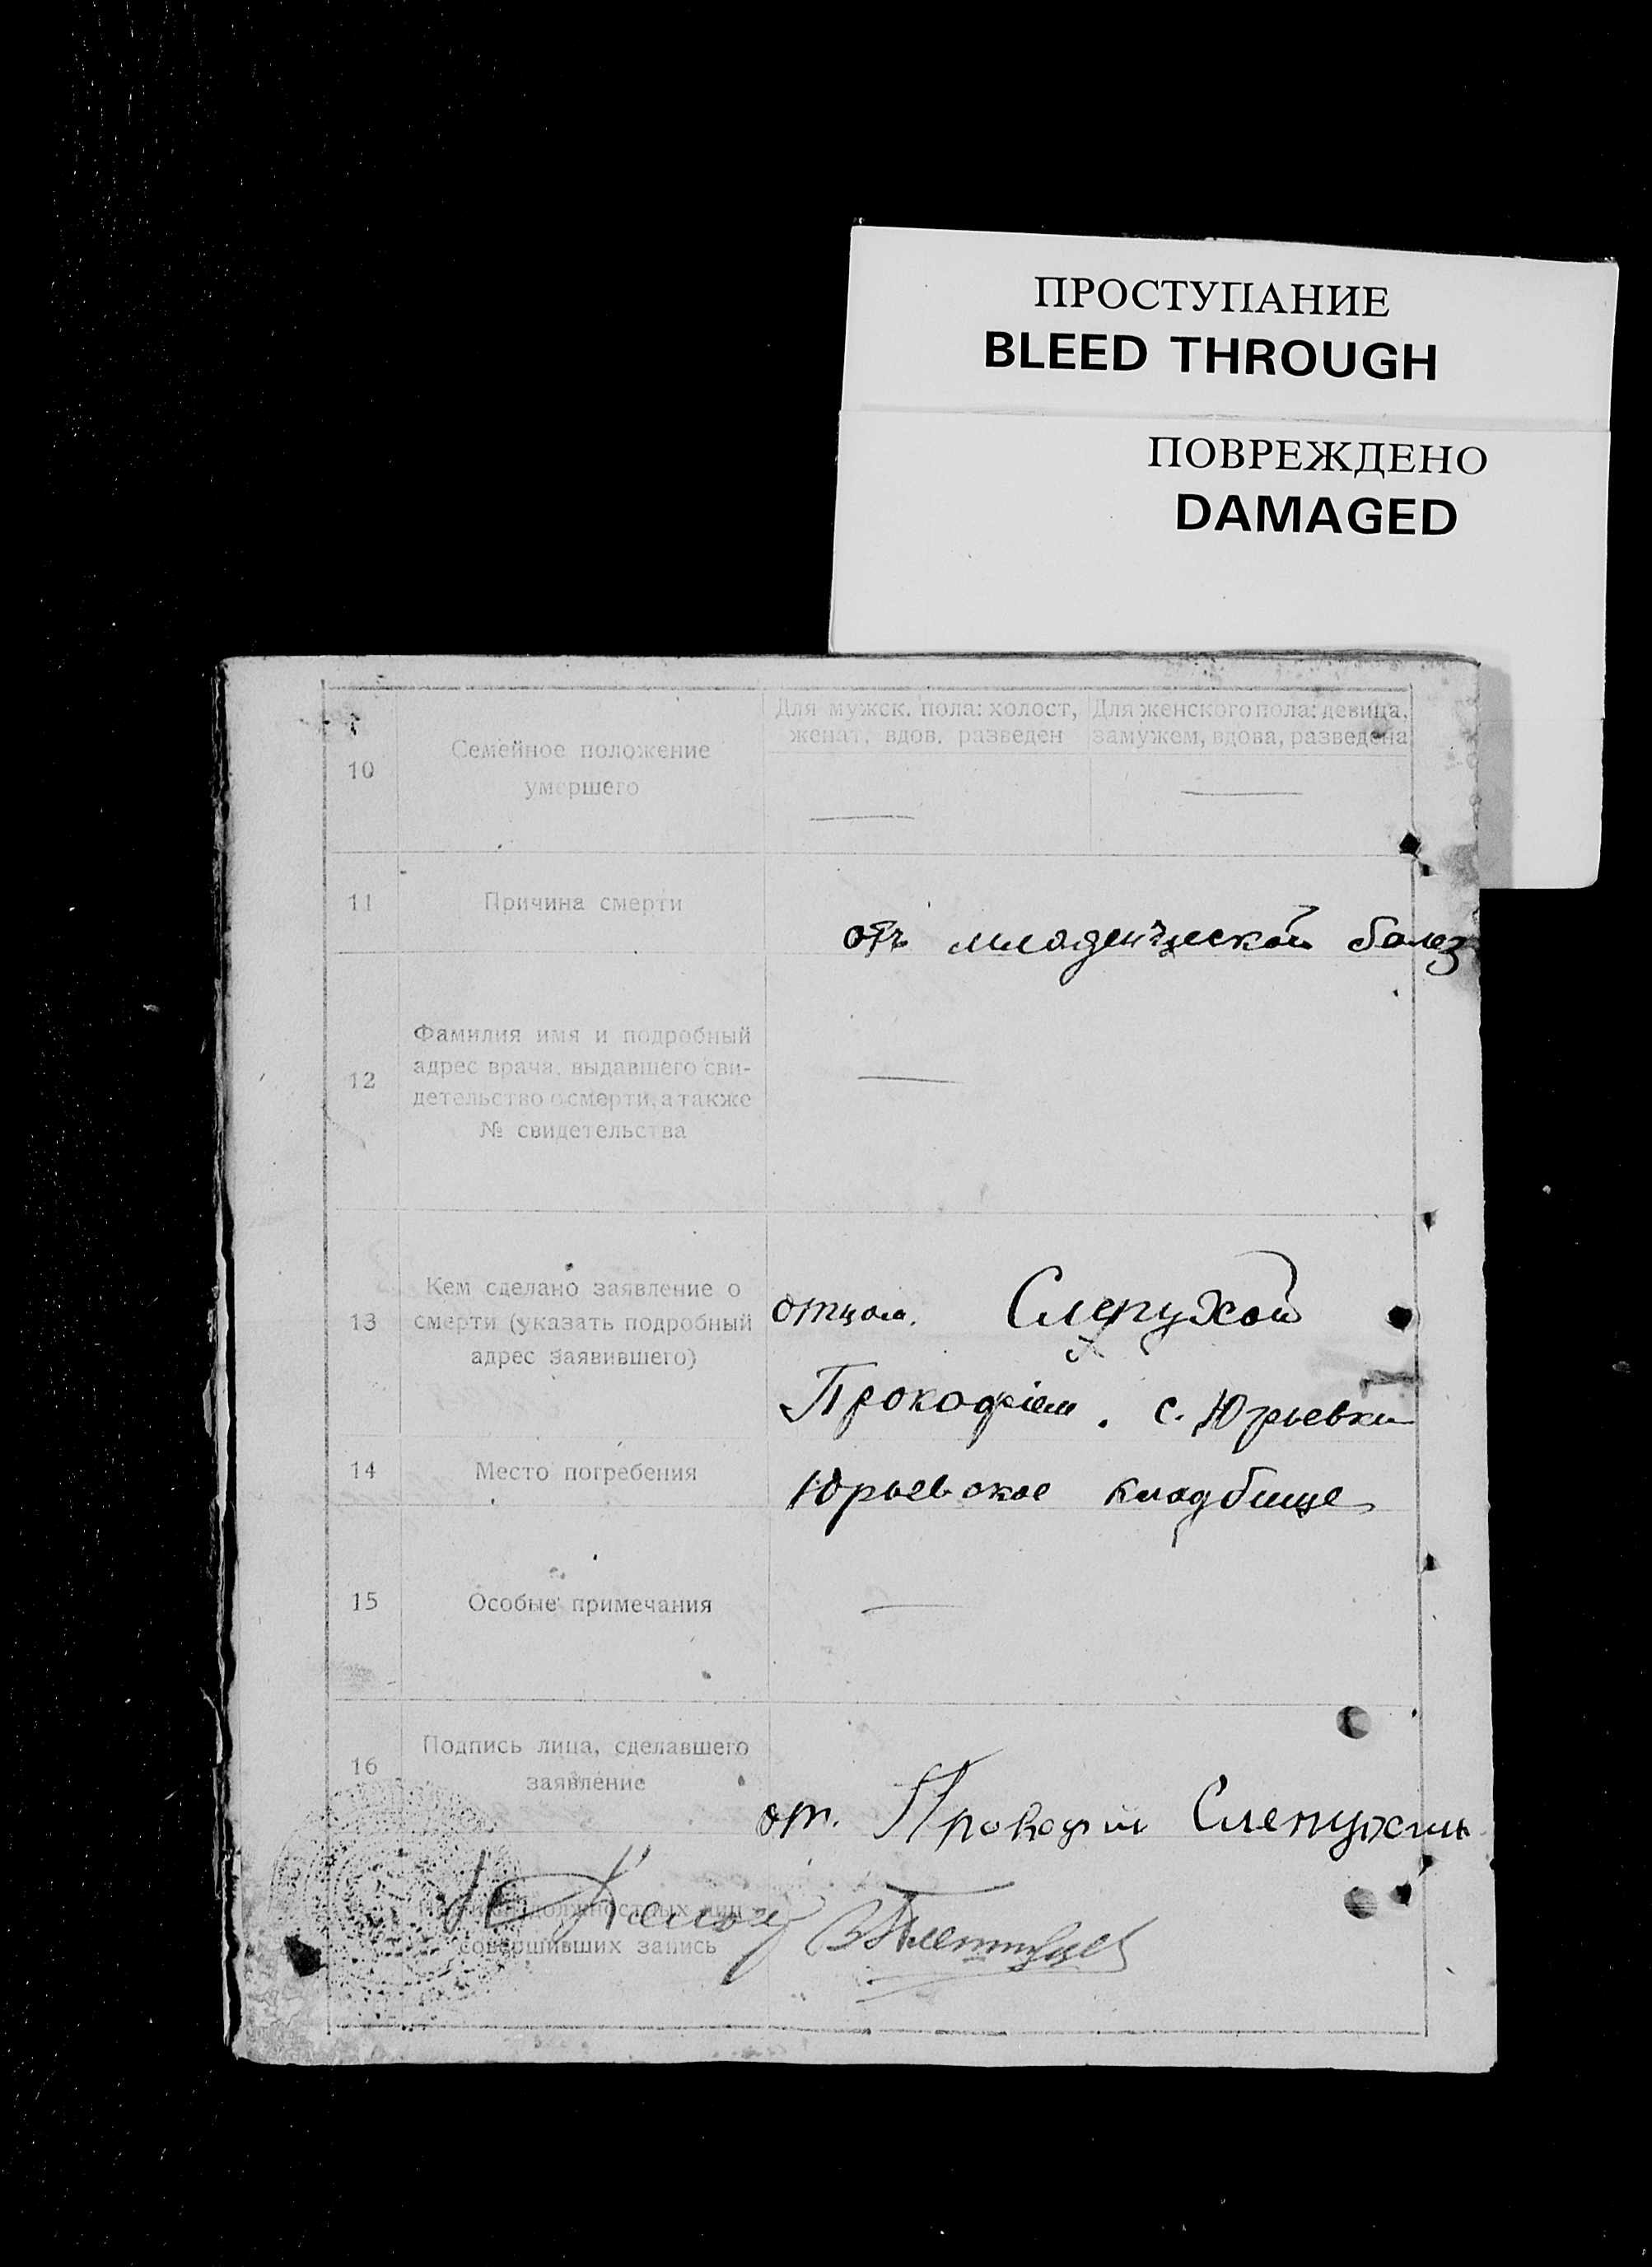 ПРОСТУПАНИЕ
BLEED THROUGH
ПОВРЕЖДЕНО
DAMAGED
10
Семейное положение
умершего
Для мужск. пола: холост,
женат, вдов, разведен
Для женского пола: девица,
замужем, вдова, разведена
11
Причина смерти
отъ младенческой болез
12
Фамилия имя и подробный
адрес врача, выдавшего сви-
детельство о смерти, а также
№ свидетельства
13
Кем сделано заявление о
смерти (указать подробный
адрес заявившего)
отцом. Слепухой
Прокофіем. с. Юрьевки
14
Место погребения
Юрьевское кладбище
15
Особые примечания
16
Подпись лица, сделавшего
заявление
от. Прокофий
должностных лиц
совершивших запись